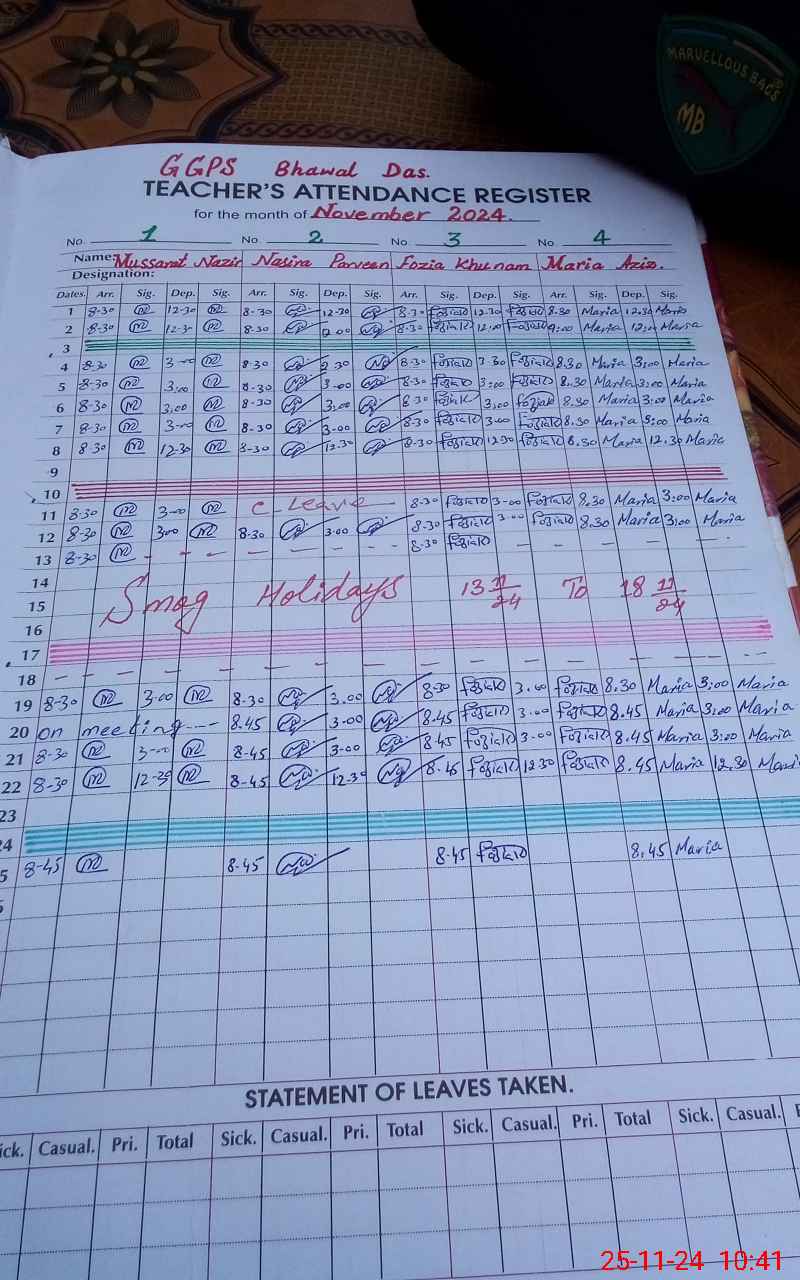 MARVELLOUS BAGS
MB
GGPS Bhawal Das.
TEACHER'S ATTENDANCE REGISTER
for the month of November 2024.
No. 1 No. 2 No. 3 No. 4
Name: Mussarat Nazir Nasira Parveen Fozia Khunam Maria Aziz.
Designation:
Dates. Arr. Sig. Dep. Sig. Arr. Sig. Dep. Sig. Arr. Sig. Dep. Sig. Arr. Sig. Dep. Sig.
1 8-30 12-30 8-30 12-30 8-30 12.30 8.30 Maria 12.30 Maria
2 8-30 12-30 8.30 8-30 9:00 Maria 12:00 Maria
3
4 8-30 3-00 8.30 2.30 8-30 3.30 8.30 Maria 3:00 Maria
5 8-30 3.00 8-30 3-00 8-30 3:00 8.30 Maria 3:00 Maria
6 8-30 3.00 8-30 3.00 8.30 3.00 8.30 Maria 3:00 Maria
7 8-30 3-00 8-30 3-00 8-30 3-00 8.30 Maria 3:00 Maria
8 8.30 12-30 8-30 12.30 8-30 12.30 8.30 Maria 12.30 Maria
9
10
11 8-30 3-00 C-Leave 8-30 3-00 8.30 Maria 3:00 Maria
12 8-30 3.00 8.30 3.00 8.30 3-00 8.30 Maria 3:00 Maria
13 8-30 8-30
14
Smog Holidays 13 11/24 To 18 11/24
15
16
17
18
19 8-30 3.00 8-30 3.00 8-30 3.00 8.30 Maria 3:00 Maria
20 on meeting--- 8.45 3-00 8.45 3.00 8.45 Maria 3:00 Maria
21 8-30 3-00 8-45 3-00 8.45 3-00 8.45 Maria 3:00 Maria
22 8-30 12-30 8-45 12-30 8-45 12.30 8.45 Maria 12.30 Mari
23
24
5 8-45 8.45 8.45 8.45 Maria
STATEMENT OF LEAVES TAKEN.
ick. Casual. Pri. Total Sick. Casual. Pri. Total Sick. Casual. Pri. Total Sick. Casual.
25-11-24 10:41